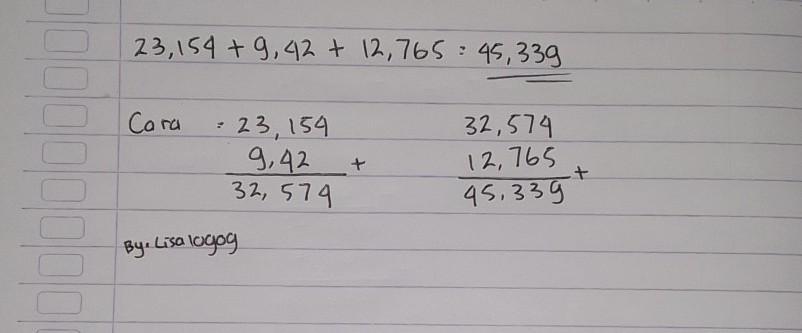 23,154 + 9,42 + 12,765 = 45,339
Cara = 23,154 32,574
9,42 + 12,765 +
32,574 45,339
By. Lisalogog